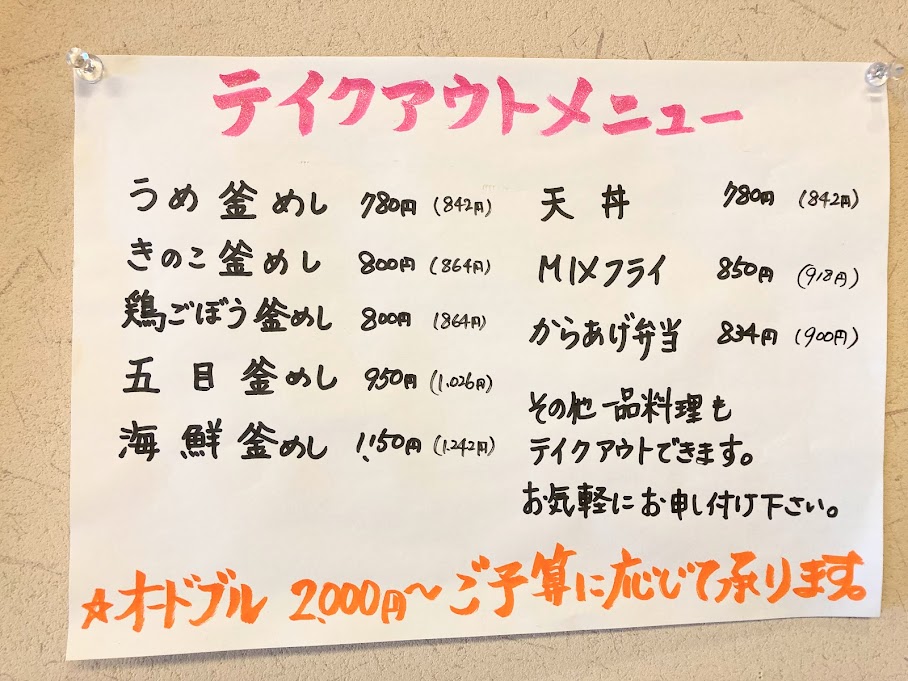 テイクアウトメニュー
うめ釜めし 780円 (842円)
きのこ釜めし 800円 (864円)
鶏ごぼう釜めし 800円 (864円)
五目釜めし 950円 (1,026円)
海鮮釜めし 1,150円 (1,242円)
天丼 780円 (842円)
MIXフライ 850円 (918円)
からあげ弁当 834円 (900円)
その他一品料理も
テイクアウトできます。
お気軽にお申し付け下さい。
☆オードブル 2,000円〜ご予算に応じて承ります。